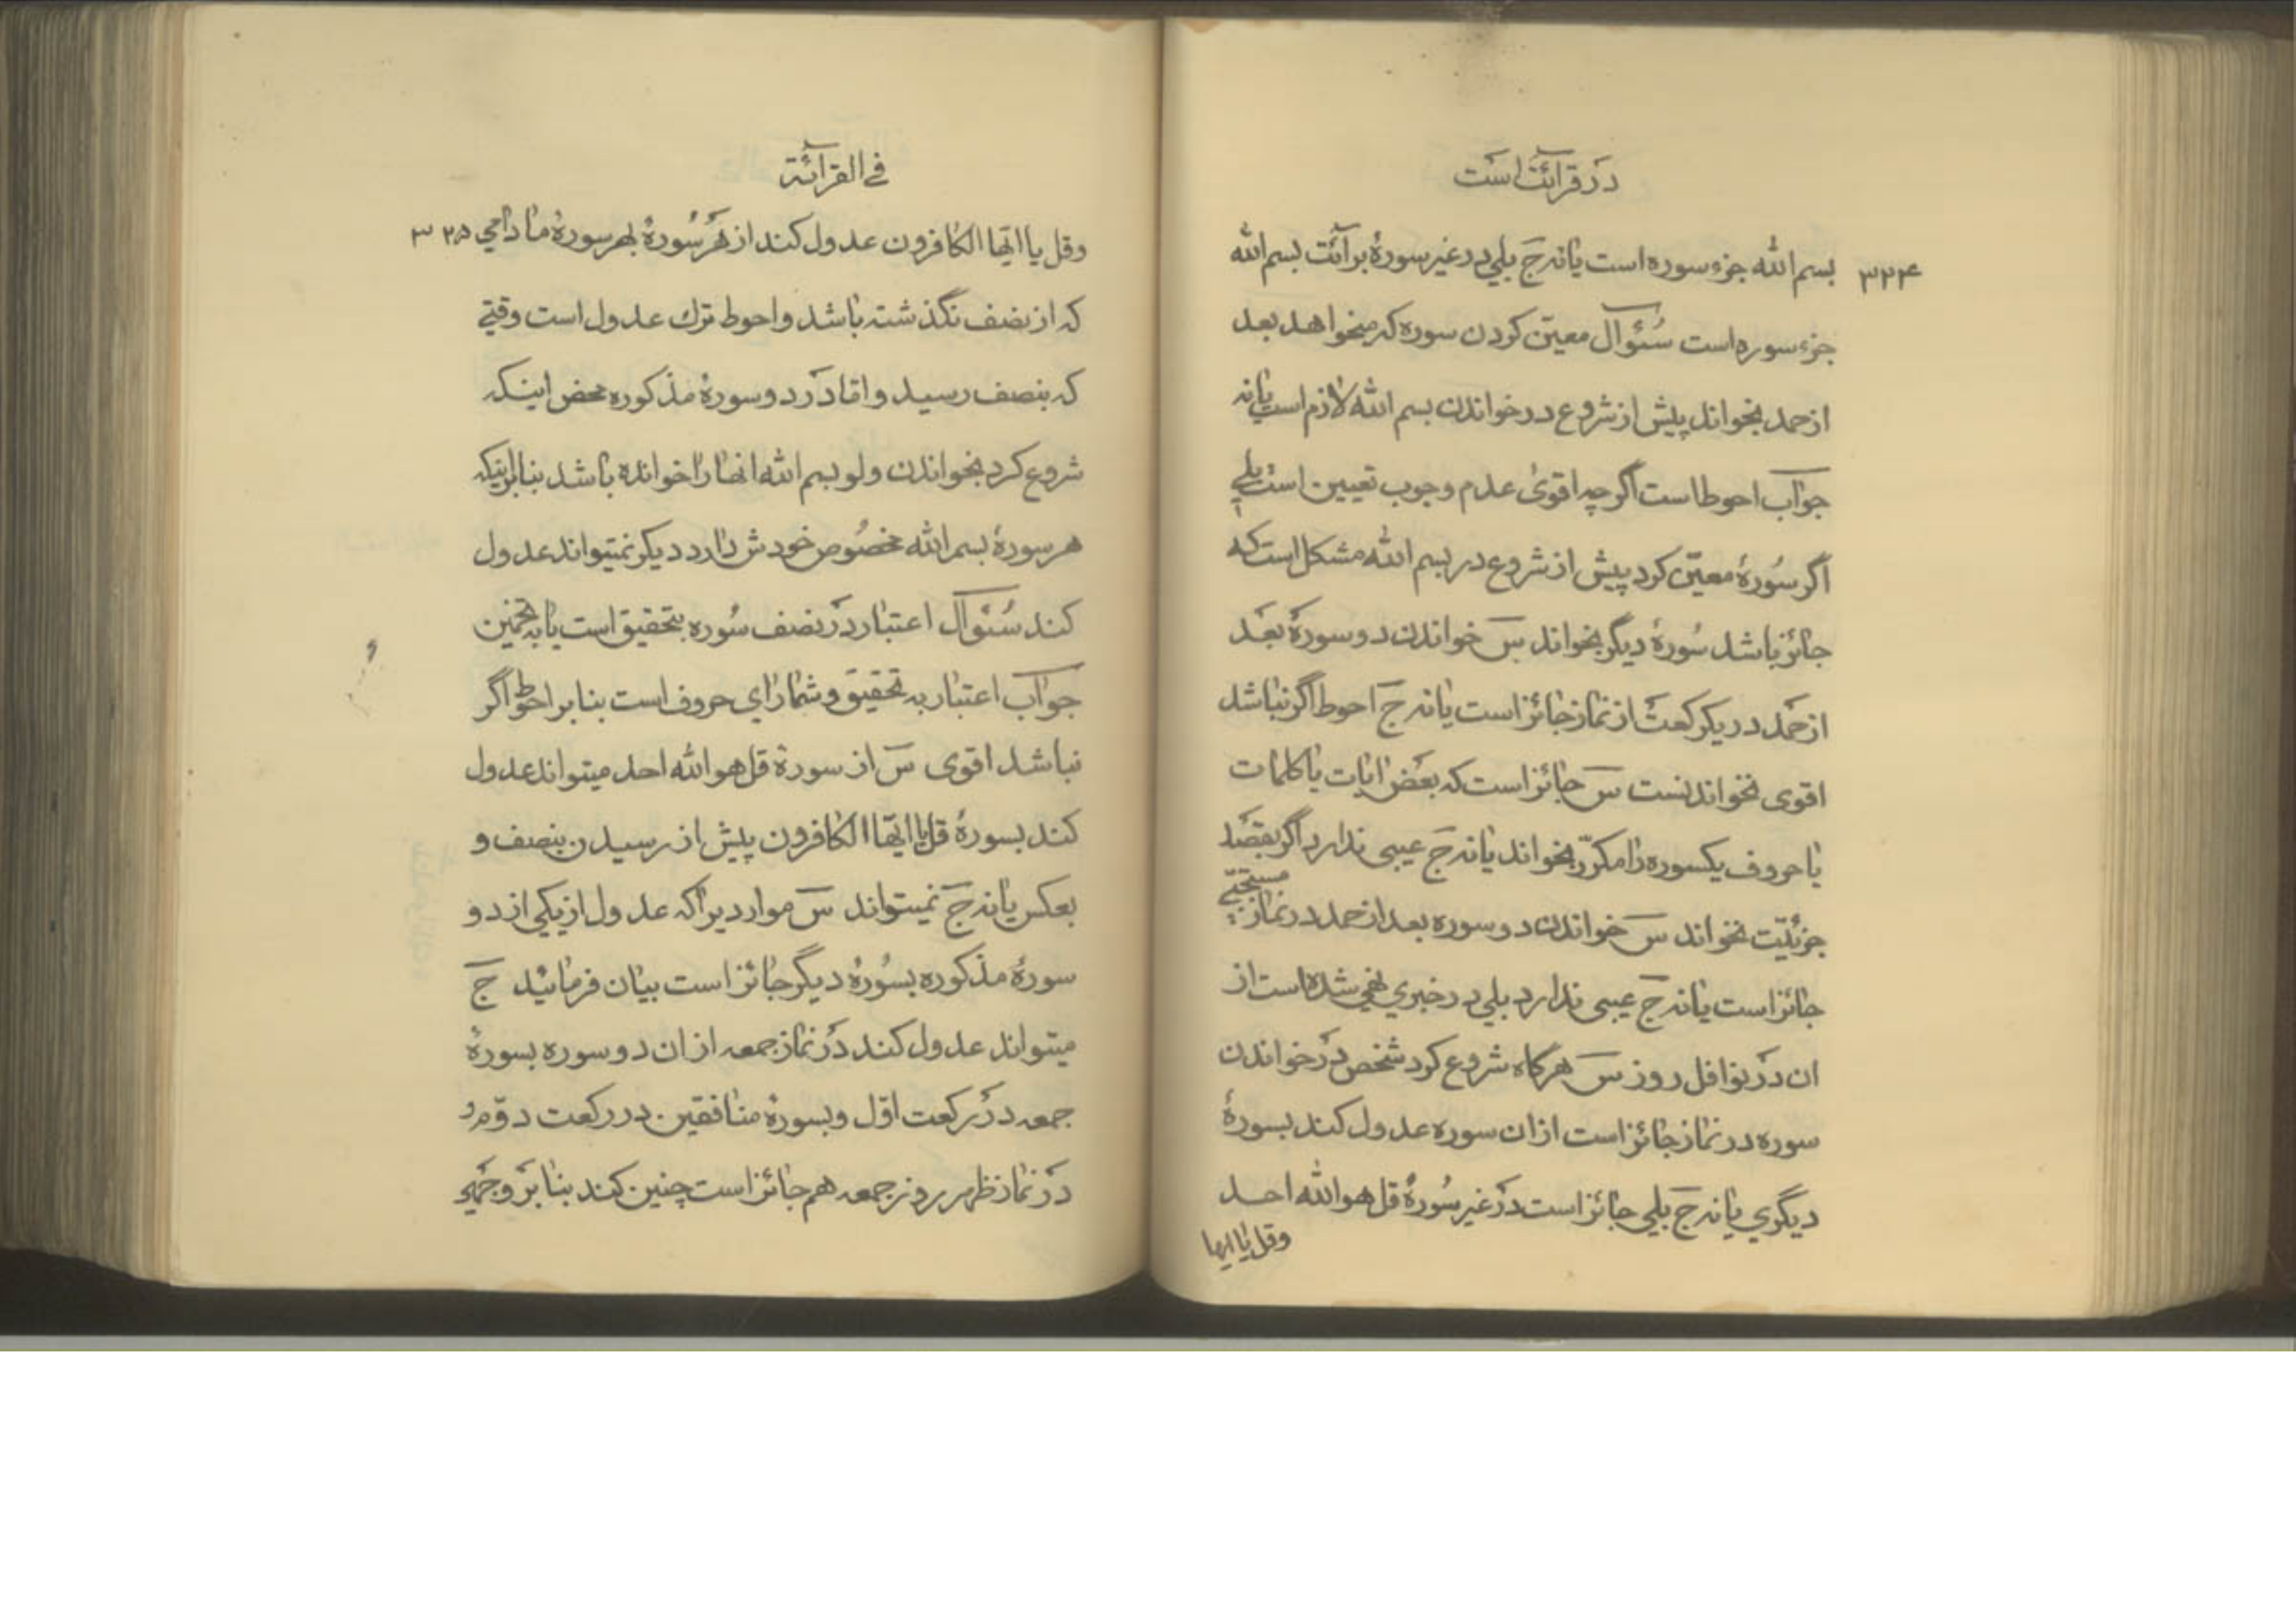 در قرائت است
۳۲۴
بسم الله جزء سوره است یا نه ج بلی در غیر سورهٔ برآئت بسم الله
جزء سوره است سُئوآل معیّن کردن سوره که میخواهد بعد
از حمد بخواند پیش از شروع در خواندن بسم الله لازم است یا نه
جوآب احوط است اگرچه اقوی عدم وجوب تعیین است بلی
اگر سُورهٔ معیّن کرد پیش از شروع در بسم الله مشکل است که
جائز باشد سُورهٔ دیگر بخواند س خواندن دو سورهٔ بعد
از حمد در یکرکعت از نماز جائز است یا نه ج احوط اگر نباشد
اقوی نخواندنست س جائز است که بعض ایات یا کلمات
یا حروف یکسوره را مکرّر بخواند یا نه ج عیبی ندارد اگر بقصد
جزئیّت نخواند س خواندن دو سوره بعد از حمد در نماز مستحبّی
جائز است یا نه ج عیبی ندارد بلی در خبری نهی شده است از
ان در نوافل روز س هرکاه شروع کرد شخص در خواندن
سوره در نماز جائز است از ان سوره عدول کند بسورهٔ
دیگری یا نه ج بلی جائز است در غیر سُورهٔ قل هو الله احد
وقل یا ایها
فی القرآئة
۳۲۵
وقل یا ایّها الکافرون عدول کند از هر سُورهٔ بهر سورهٔ مادامی
که از نصف نگذشته باشد و احوط ترك عدول است وقتی
که بنصف رسید و امّا در دو سورهٔ مذکوره محض اینکه
شروع کرد بخواندن ولو بسم الله انها را خوانده باشد بنا بر اینکه
هر سورهٔ بسم الله مخصُوص خودش دارد دیکر نمیتواند عدول
کند سُئوآل اعتبار در نصف سُوره بتحقیق است یا به تخمین
جوآب اعتبار به تحقیق و شمارای حروف است بنا بر احوط اگر
نباشد اقوی س از سورة قل هو الله احد میتواند عدول
کند بسورهٔ قل یا ایّها الکافرون پیش از رسیدن بنصف و
بعکس یا نه ج نمیتواند س مواردیرا که عدول از یکی از دو
سورهٔ مذکوره بسُورهٔ دیگر جائز است بیان فرمائید ج
میتواند عدول کند در نماز جمعه از ان دو سوره بسورهٔ
جمعه در رکعت اوّل و بسورهٔ منافقین در رکعت دوّم و
در نماز ظهر روز جمعه هم جائز است چنین کند بنا بر وجهی